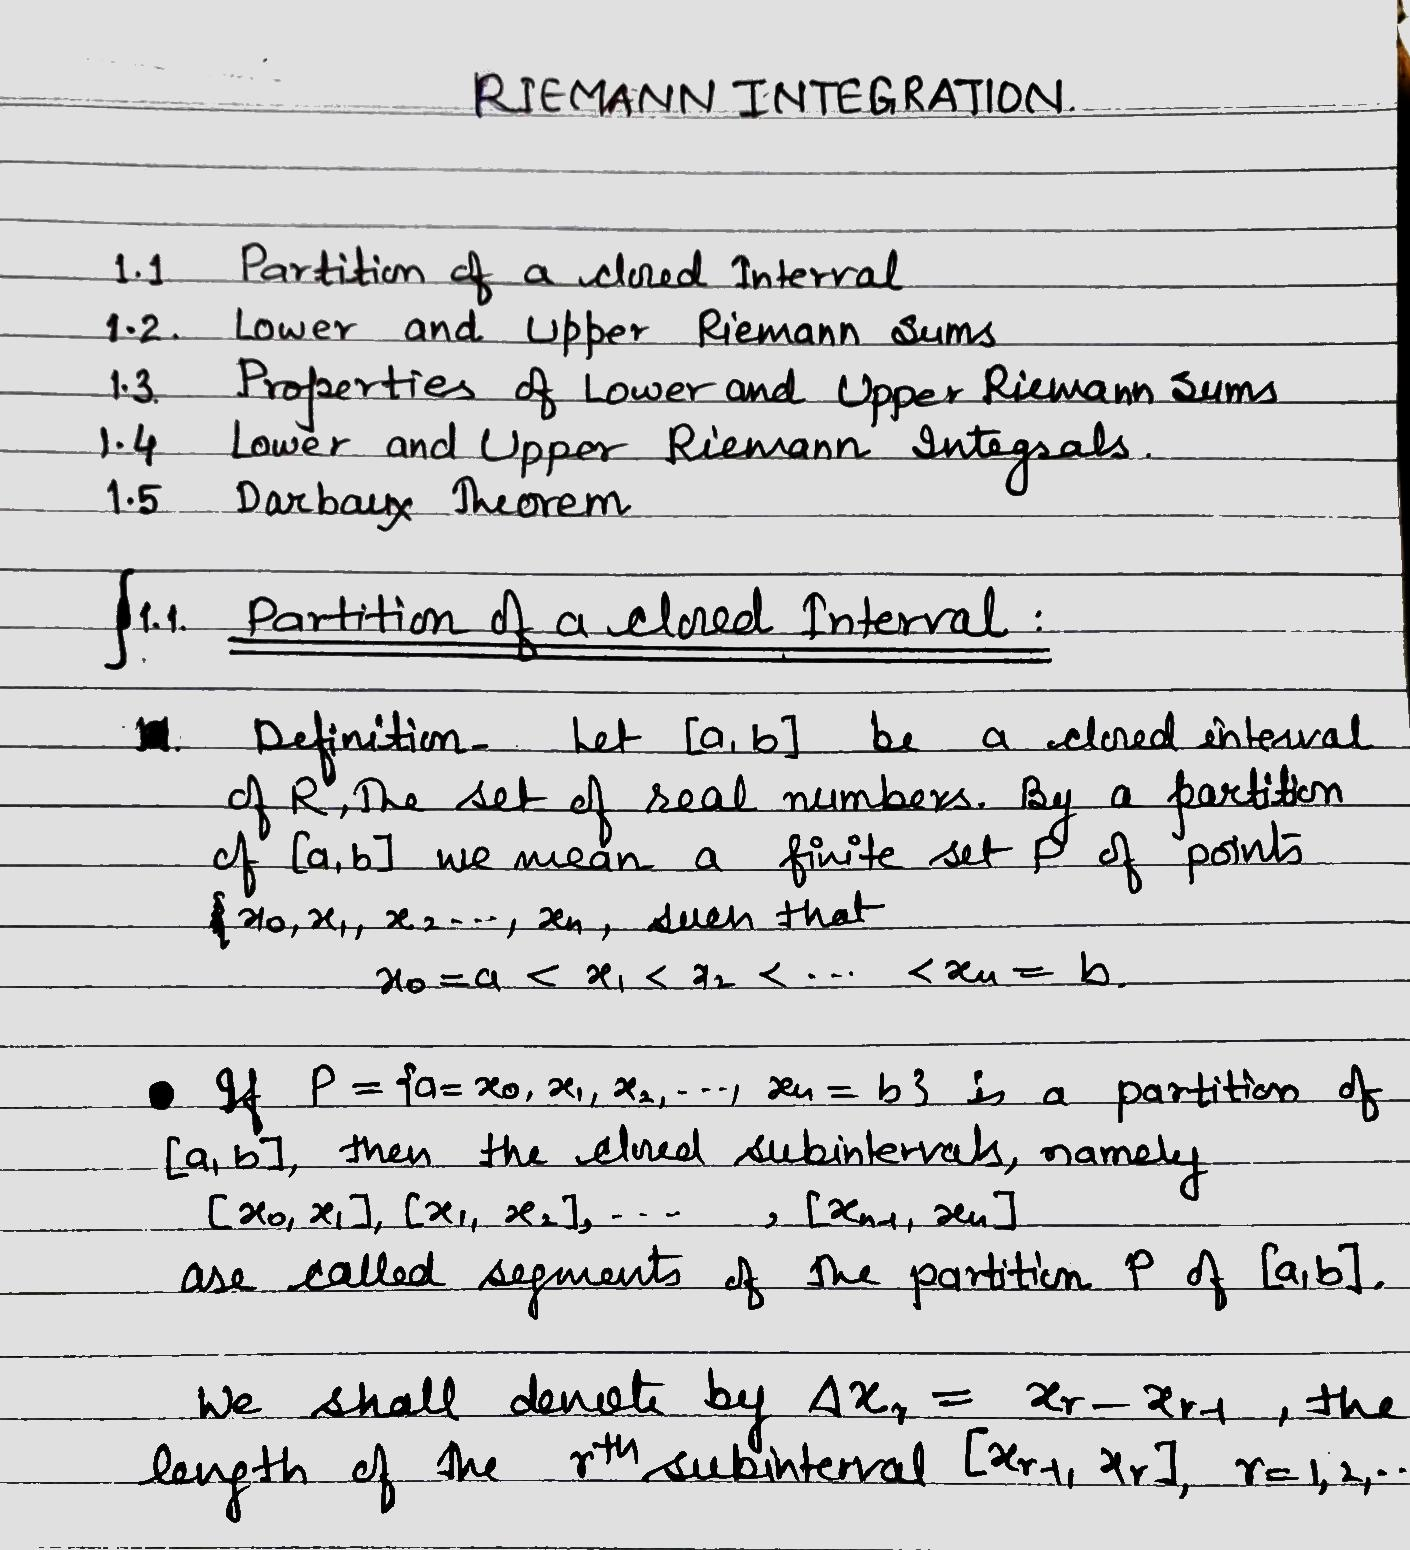 RIEMANN INTEGRATION.
1.1 Partition of a closed Interval
1.2. Lower and Upper Riemann Sums
1.3. Properties of Lower and Upper Riemann Sums
1.4 Lower and Upper Riemann Integrals.
1.5 Darbaux Theorem
∫1.1. Partition of a closed Interval :
Definition - Let [a, b] be a closed interval
of R, The set of real numbers. By a partition
of [a, b] we mean a finite set P of points
{x₀, x₁, x₂ ---, xₙ, such that
x₀ = a < x₁ < x₂ < ... < xₙ = b.
● If P = {a = x₀, x₁, x₂, ---, xₙ = b} is a partition of
[a, b], then the closed subintervals, namely
[x₀, x₁], [x₁, x₂], --- , [xₙ₋₁, xₙ]
are called segments of the partition P of [a, b].
We shall denote by Δxᵣ = xᵣ - xᵣ₋₁, the
length of the rth subinterval [xᵣ₋₁, xᵣ], r = 1, 2, ..